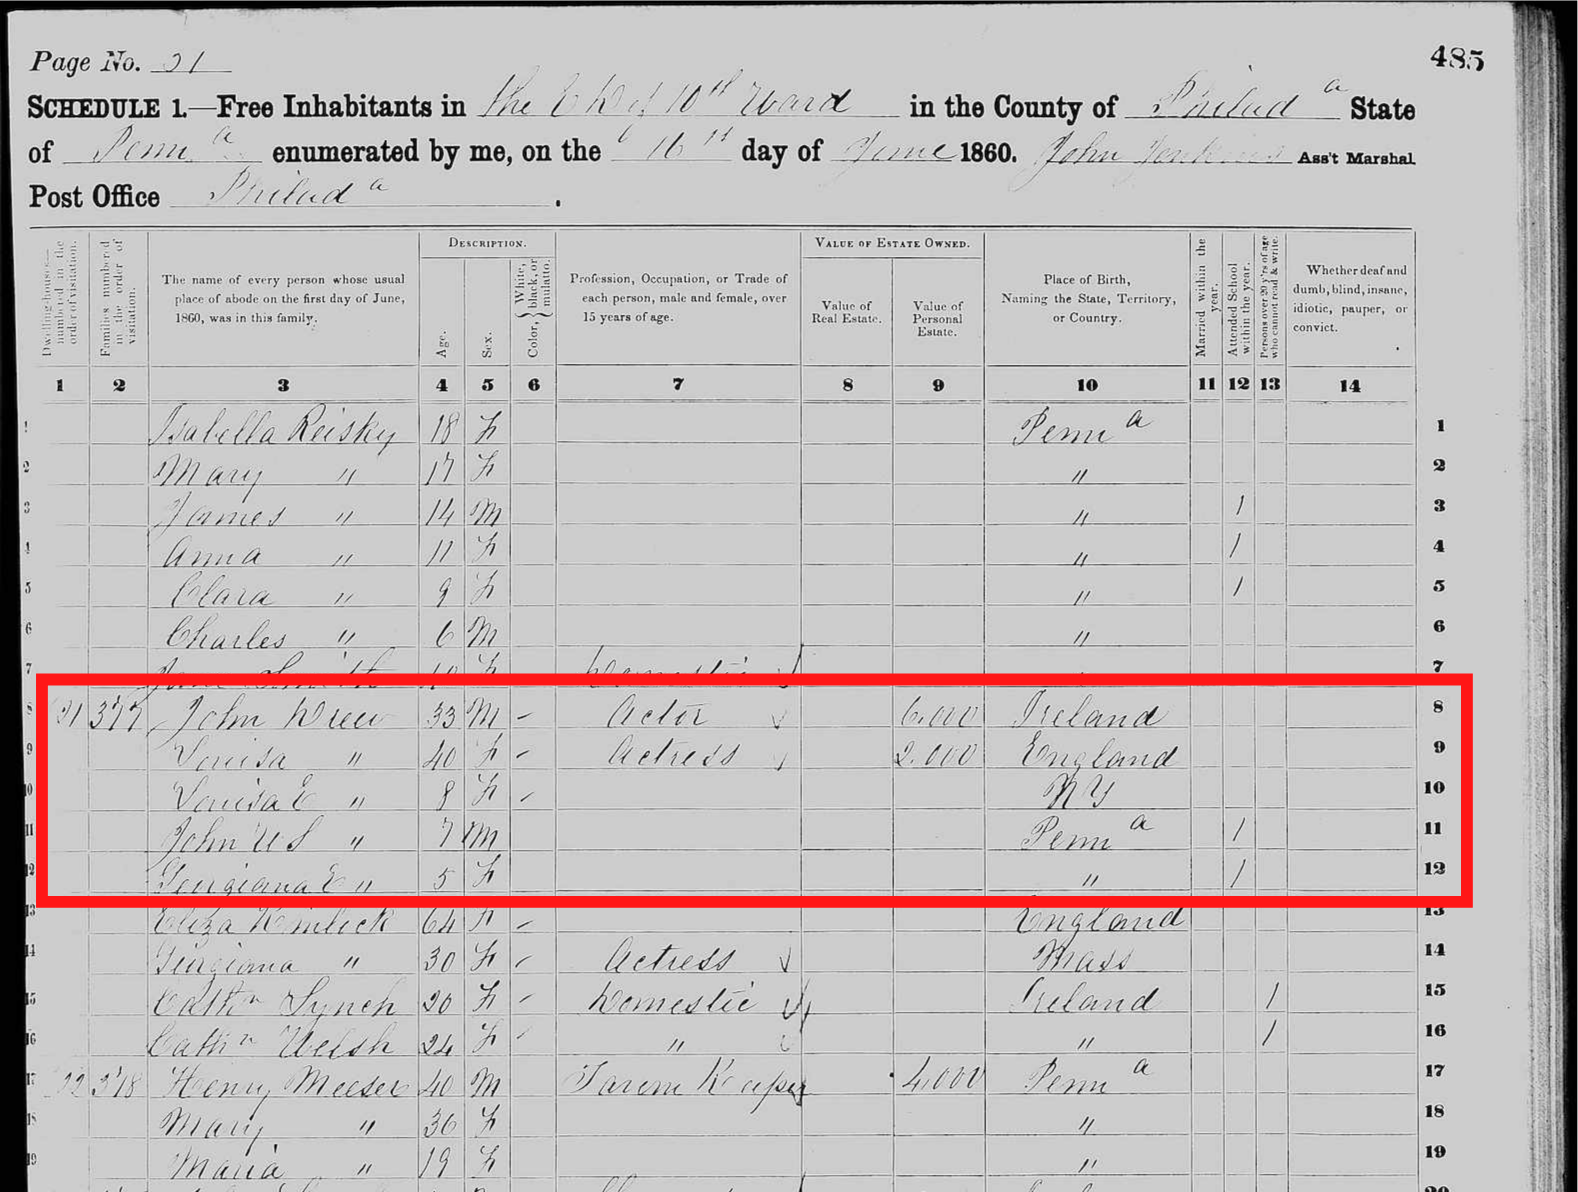 Page No. 31
485
SCHEDULE 1.—Free Inhabitants in the of 10th Ward in the County of Philad a State
of Penn a enumerated by me, on the 16 day of June 1860. John Jenkins Ass't Marshal
Post Office Philad a .
DESCRIPTION. VALUE OF ESTATE OWNED.
Dwelling-houses—numbered in the order of visitation. Families numbered in the order of visitation. The name of every person whose usual place of abode on the first day of June, 1860, was in this family. Age. Sex. Color, { White, black, or mulatto. Profession, Occupation, or Trade of each person, male and female, over 15 years of age. Value of Real Estate. Value of Personal Estate. Place of Birth, Naming the State, Territory, or Country. Married within the year. Attended School within the year. Persons over 20 y'rs of age who cannot read & write. Whether deaf and dumb, blind, insane, idiotic, pauper, or convict.
1 2 3 4 5 6 7 8 9 10 11 12 13 14
1 Isabella Reisky 18 F Penn a 1
2 Mary " 17 F " 2
3 James " 14 M " / 3
4 Anna " 11 F " / 4
5 Clara " 9 F " / 5
6 Charles " 6 M " 6
7 Smith F Domestic 7
8 377 John Drew 33 M – Actor 6,000 Ireland 8
9 Louisa " 40 F – Actress 2,000 England 9
10 Louisa E " 8 F – N Y 10
11 John " 7 M Penn a / 11
12 Georgiana E " 5 F " / 12
13 Eliza Kinlock 64 F – England 13
14 Georgiana " 30 F – Actress Mass 14
15 Cathn Lynch 20 F – Domestic Ireland / 15
16 Cathn Welsh 24 F – " " / 16
17 Henry Meeser 40 M Tavern Keeper 4,000 Penn a 17
18 Mary " 36 F " 18
19 Maria " 19 F " 19
20